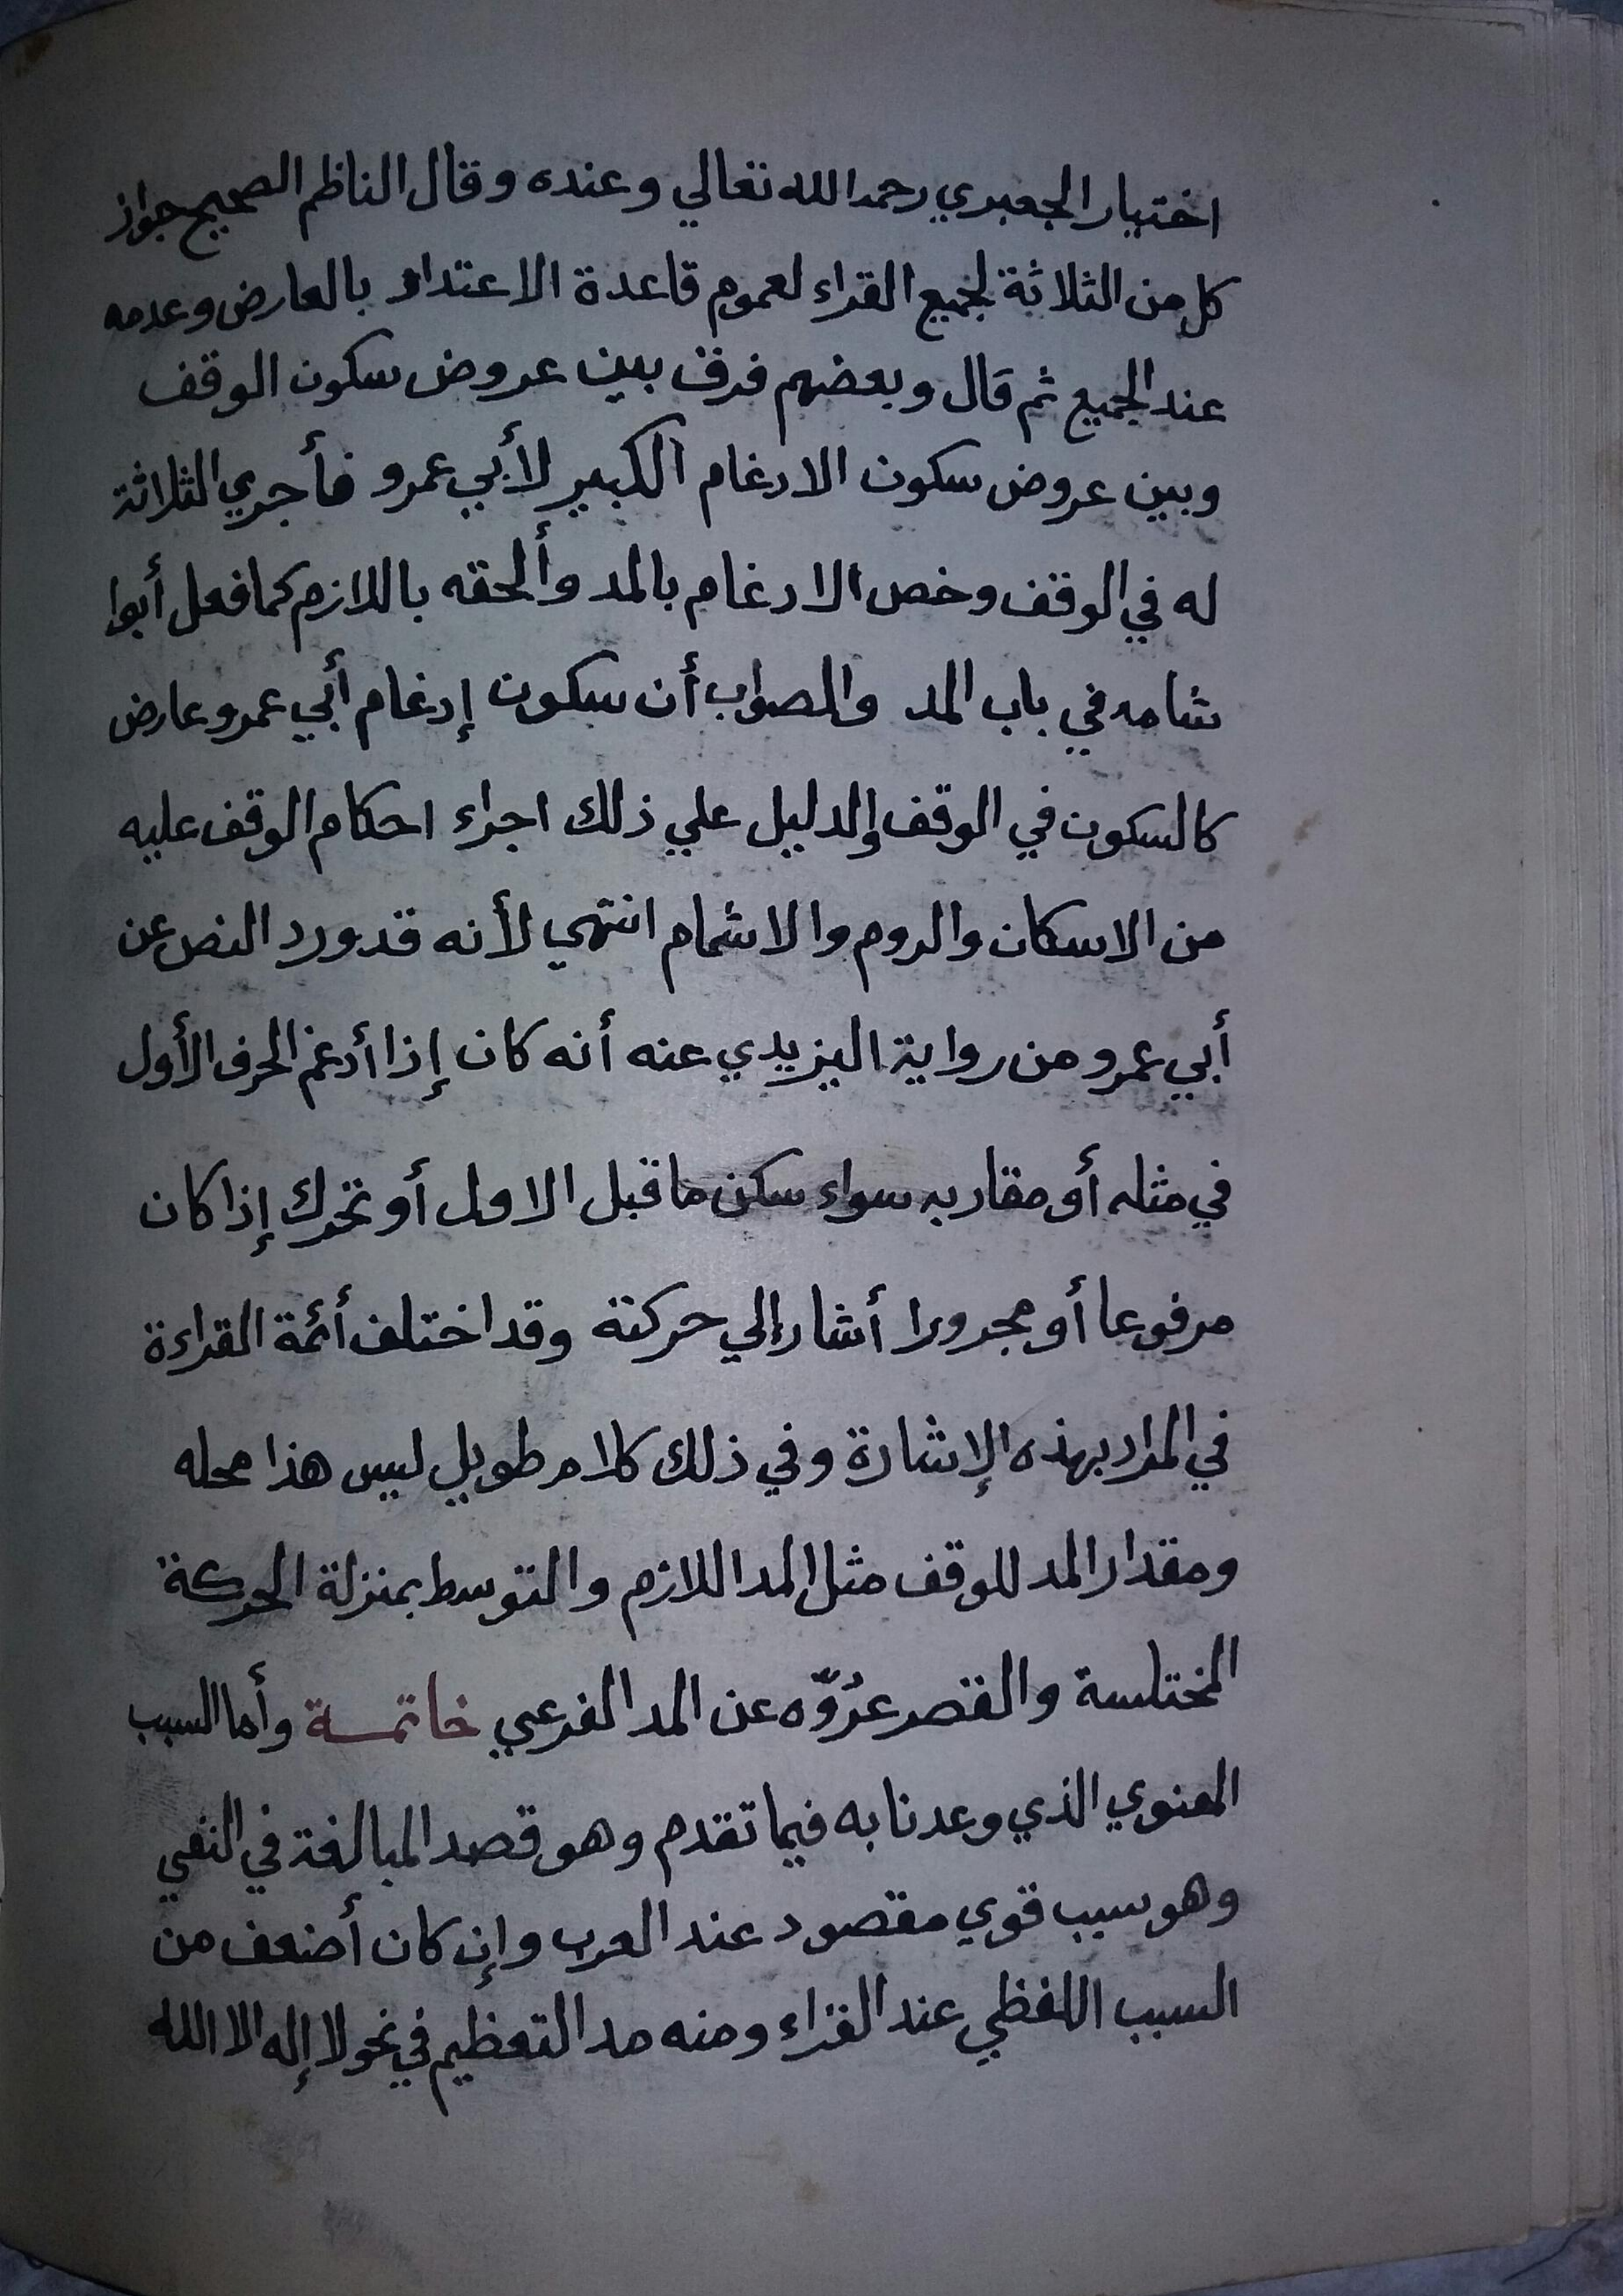 اختيار الجعبري رحمه الله تعالي وعنده وقال الناظم الصحيح جواز
كل من الثلاثة لجميع القراء لعموم قاعدة الاعتداد بالعارض وعدمه
عند الجميع ثم قال وبعضهم فرق بين عروض سكون الوقف
وبين عروض سكون الادغام الكبير لأبي عمرو فأجري الثلاثة
له في الوقف وخص الادغام بالمد وألحقه باللازم كما فعل أبوا
شامه في باب المد والصواب أن سكون إدغام أبي عمرو عارض
كالسكون في الوقف والدليل علي ذلك اجراء احكام الوقف عليه
من الاسكان والروم والاشمام انتهي لأنه قد ورد النص عن
أبي عمرو من رواية اليزيدي عنه أنه كان إذا أدغم الحرف الأول
في مثله أو مقاربه سواء سكن ما قبل الاول أو تحرك إذا كان
مرفوعا أو مجرورا أشار إلي حركتة وقد اختلف أئمة القراءة
في المراد بهذه الإشارة وفي ذلك كلام طويل ليس هذا محله
ومقدار المد للوقف مثل المد اللازم والتوسط بمنزلة الحركة
المختلسة والقصر عرُوّه عن المد الفرعي خاتمـــة وأما السبب
المعنوي الذي وعدنا به فيما تقدم وهو قصد المبالغة في النفي
وهو سبب قوي مقصود عند العرب وإن كان أضعف من
السبب اللفظي عند القراء ومنه مد التعظيم في نحو لا إله الا الله